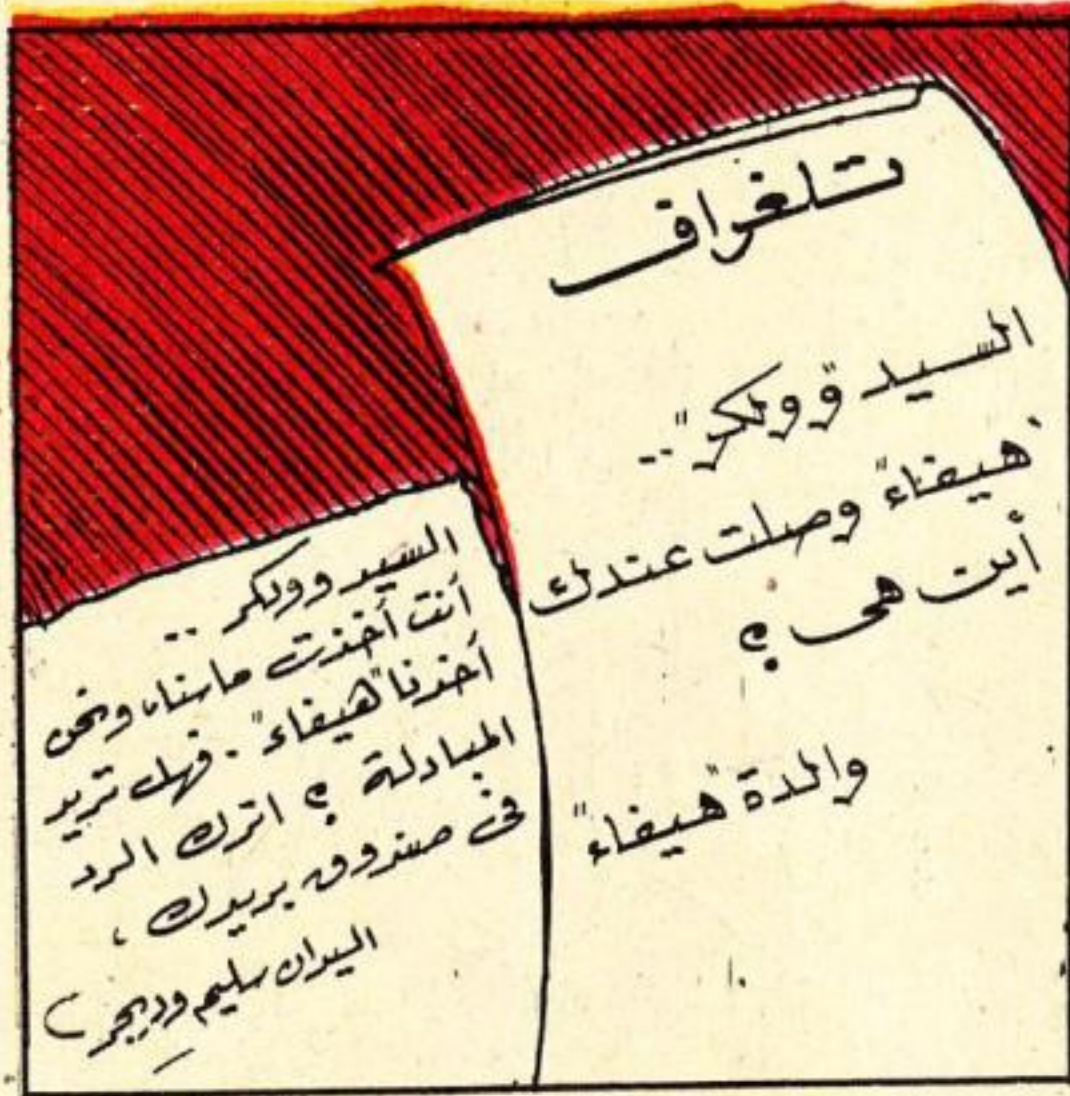 تلغراف
السيد "وولكر"..
"هيفاء" وصلت عندك
أين هى ؟
والدة "هيفاء"
السيد وولكر ..
أنت أخذت ماسنا، ونحن
أخذنا "هيفاء" . فهل تريد
المبادلة ؟ اترك الرد
فى صندوق بريدك ،
السيدان سليم و